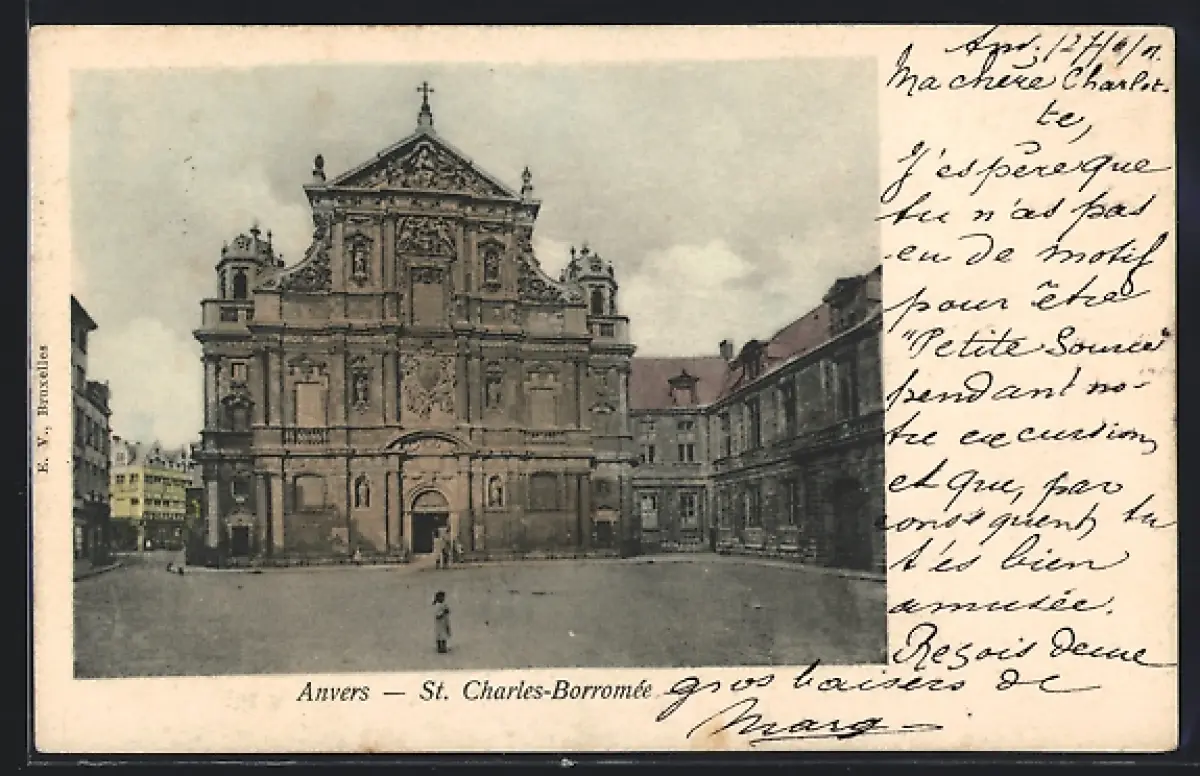 E. V., Bruxelles
Anvers — St. Charles-Borromée
Anv. 27/6/01.
Ma chère Charlot-
te,
J'espère que
tu n'as pas
eu de motif
pour être
"Petite Source"
pendant no-
tre excursion,
et que, par
conséquent, tu
t'es bien
amusée.
Reçois deux
gros baisers de
Marg